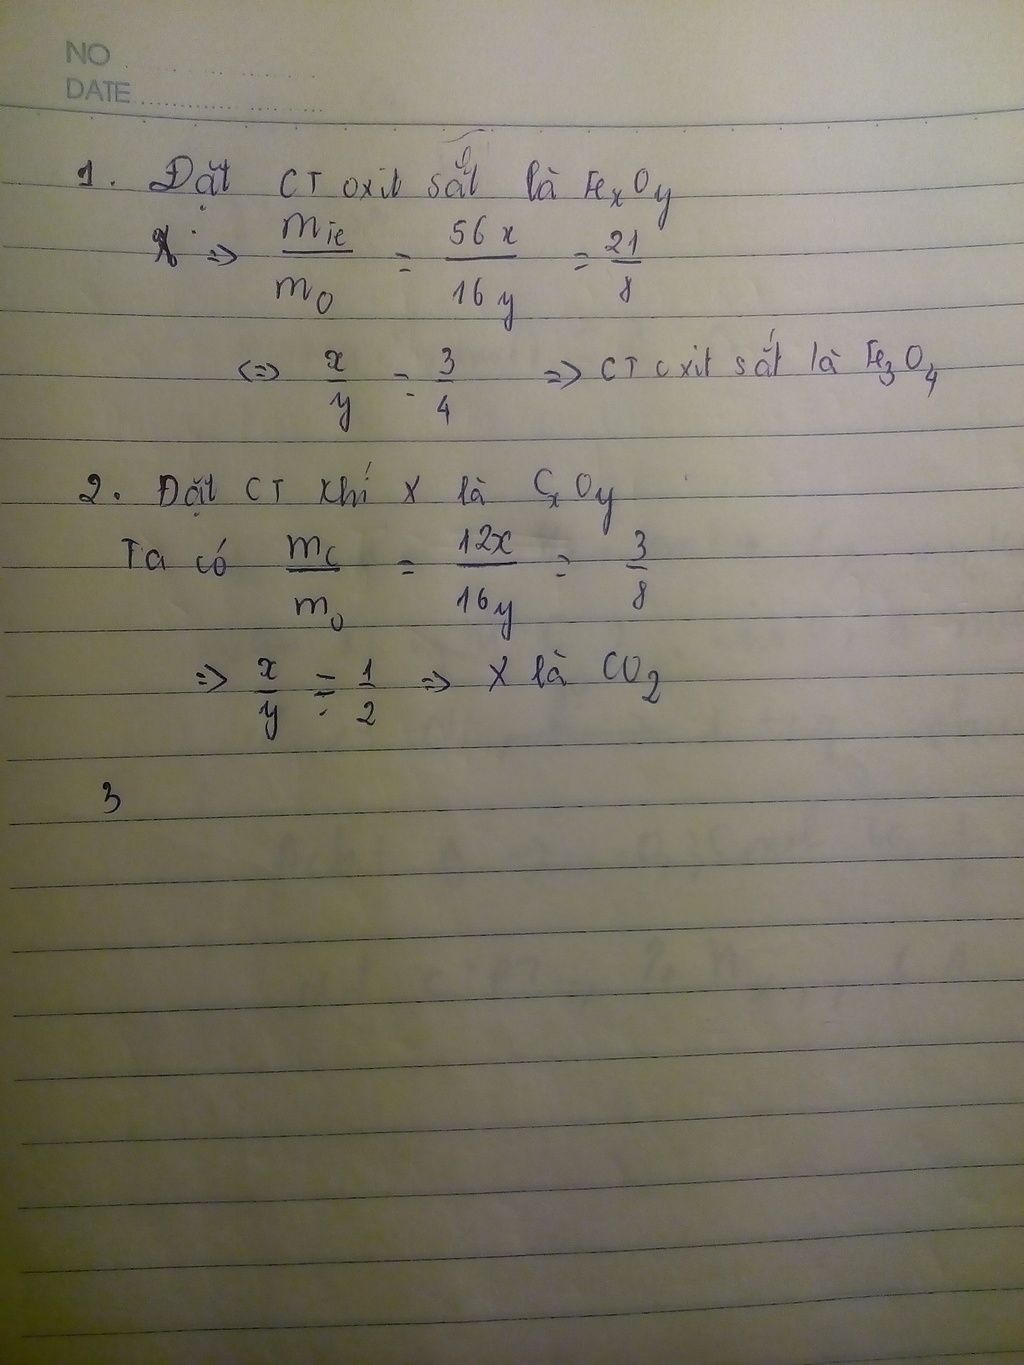 NO
DATE
1. Đặt CT oxit sắt là FexOy
=> mFe/mO = 56x/16y = 21/8
<=> x/y = 3/4 => CT oxit sắt là Fe3O4
2. Đặt CT khí X là CxOy
Ta có mC/mO = 12x/16y = 3/8
=> x/y = 1/2 => X là CO2
3